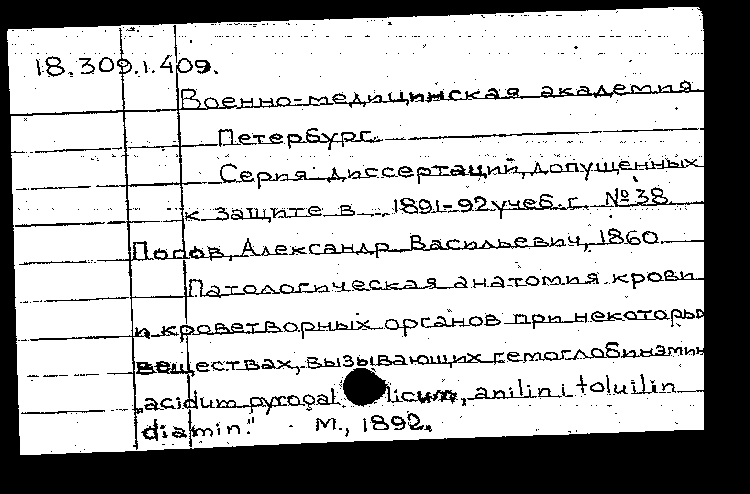 18.309.1.409.
Военно-медицинская академия
Петербург.
Серия диссертаций, допущенных
к защите в 1891-92 учеб. г. №38
Попов, Александр Васильевич, 1860.
Патологическая анатомия крови
и кроветворных органов при некоторы
веществах, вызывающих гемоглобинэми
"acidum pyrogal licum, anilin i toluilin
diamin." М., 1892.